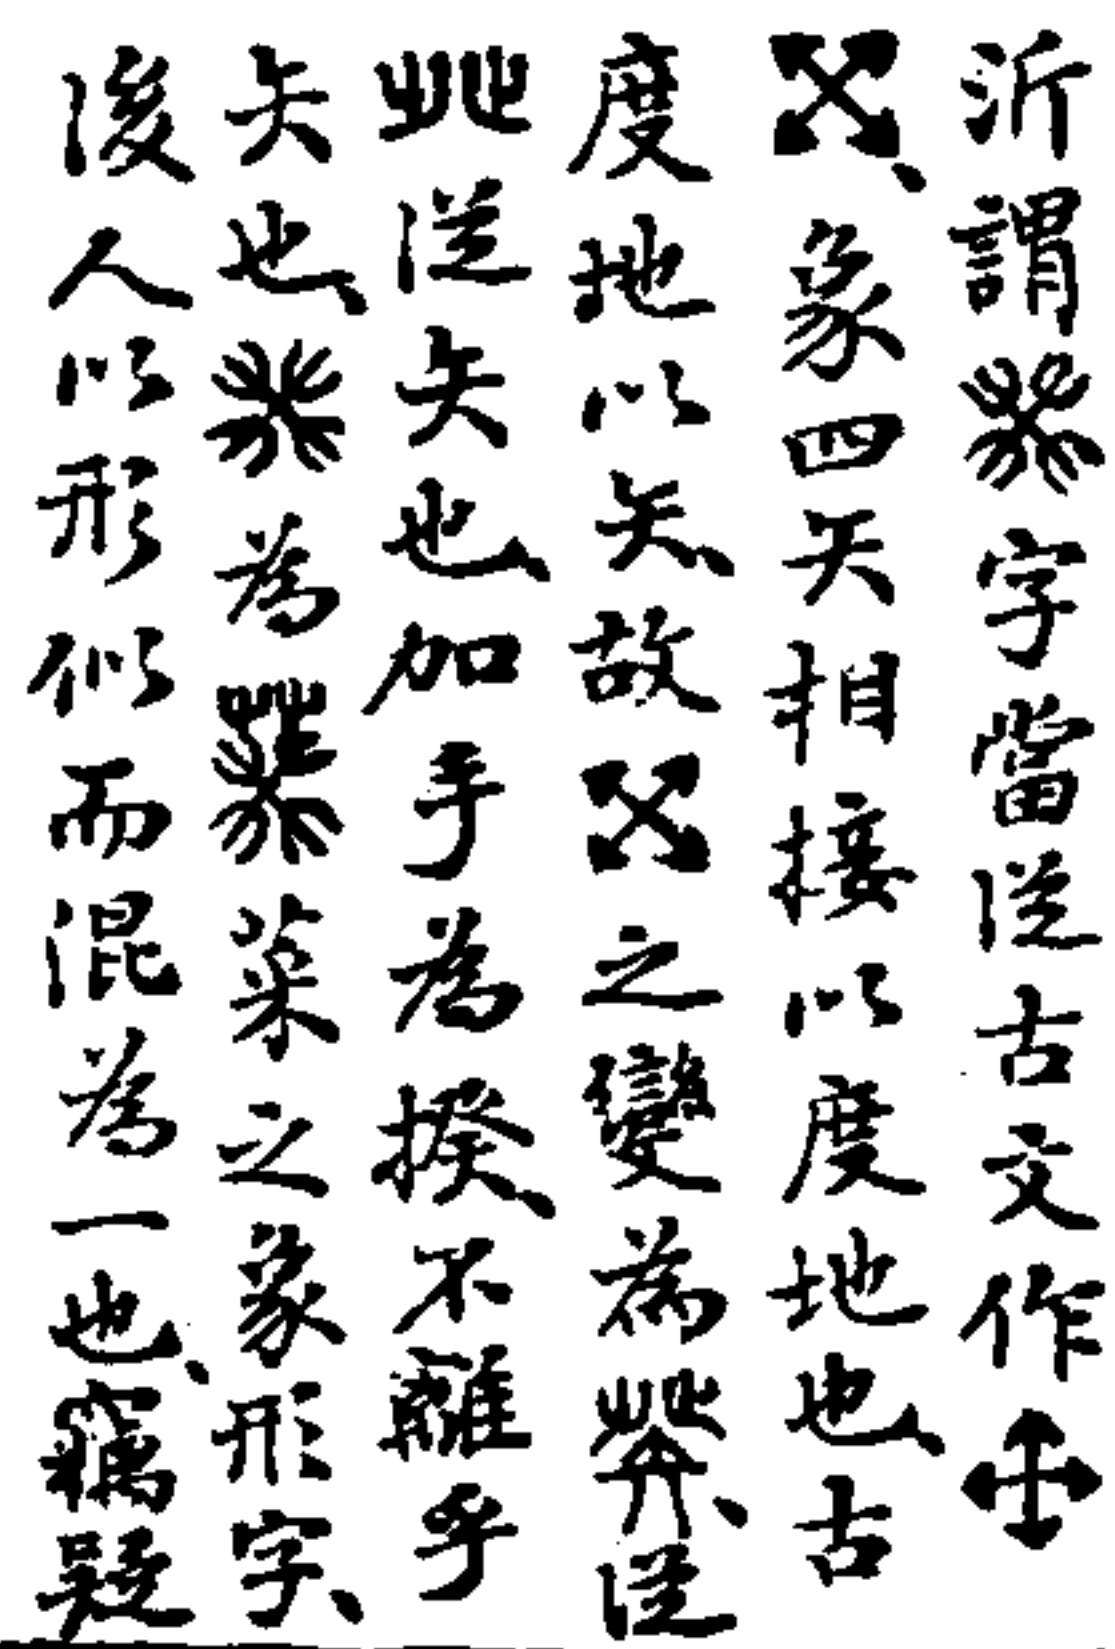 沂謂𤼩字當從古文作
、象四矢相接以度地也、古
度地以矢、故之變為、從
癶從矢也、加手為揆、不離乎
矢也、𤼩為菜之象形字、
後人以形似而混為一也、竊疑